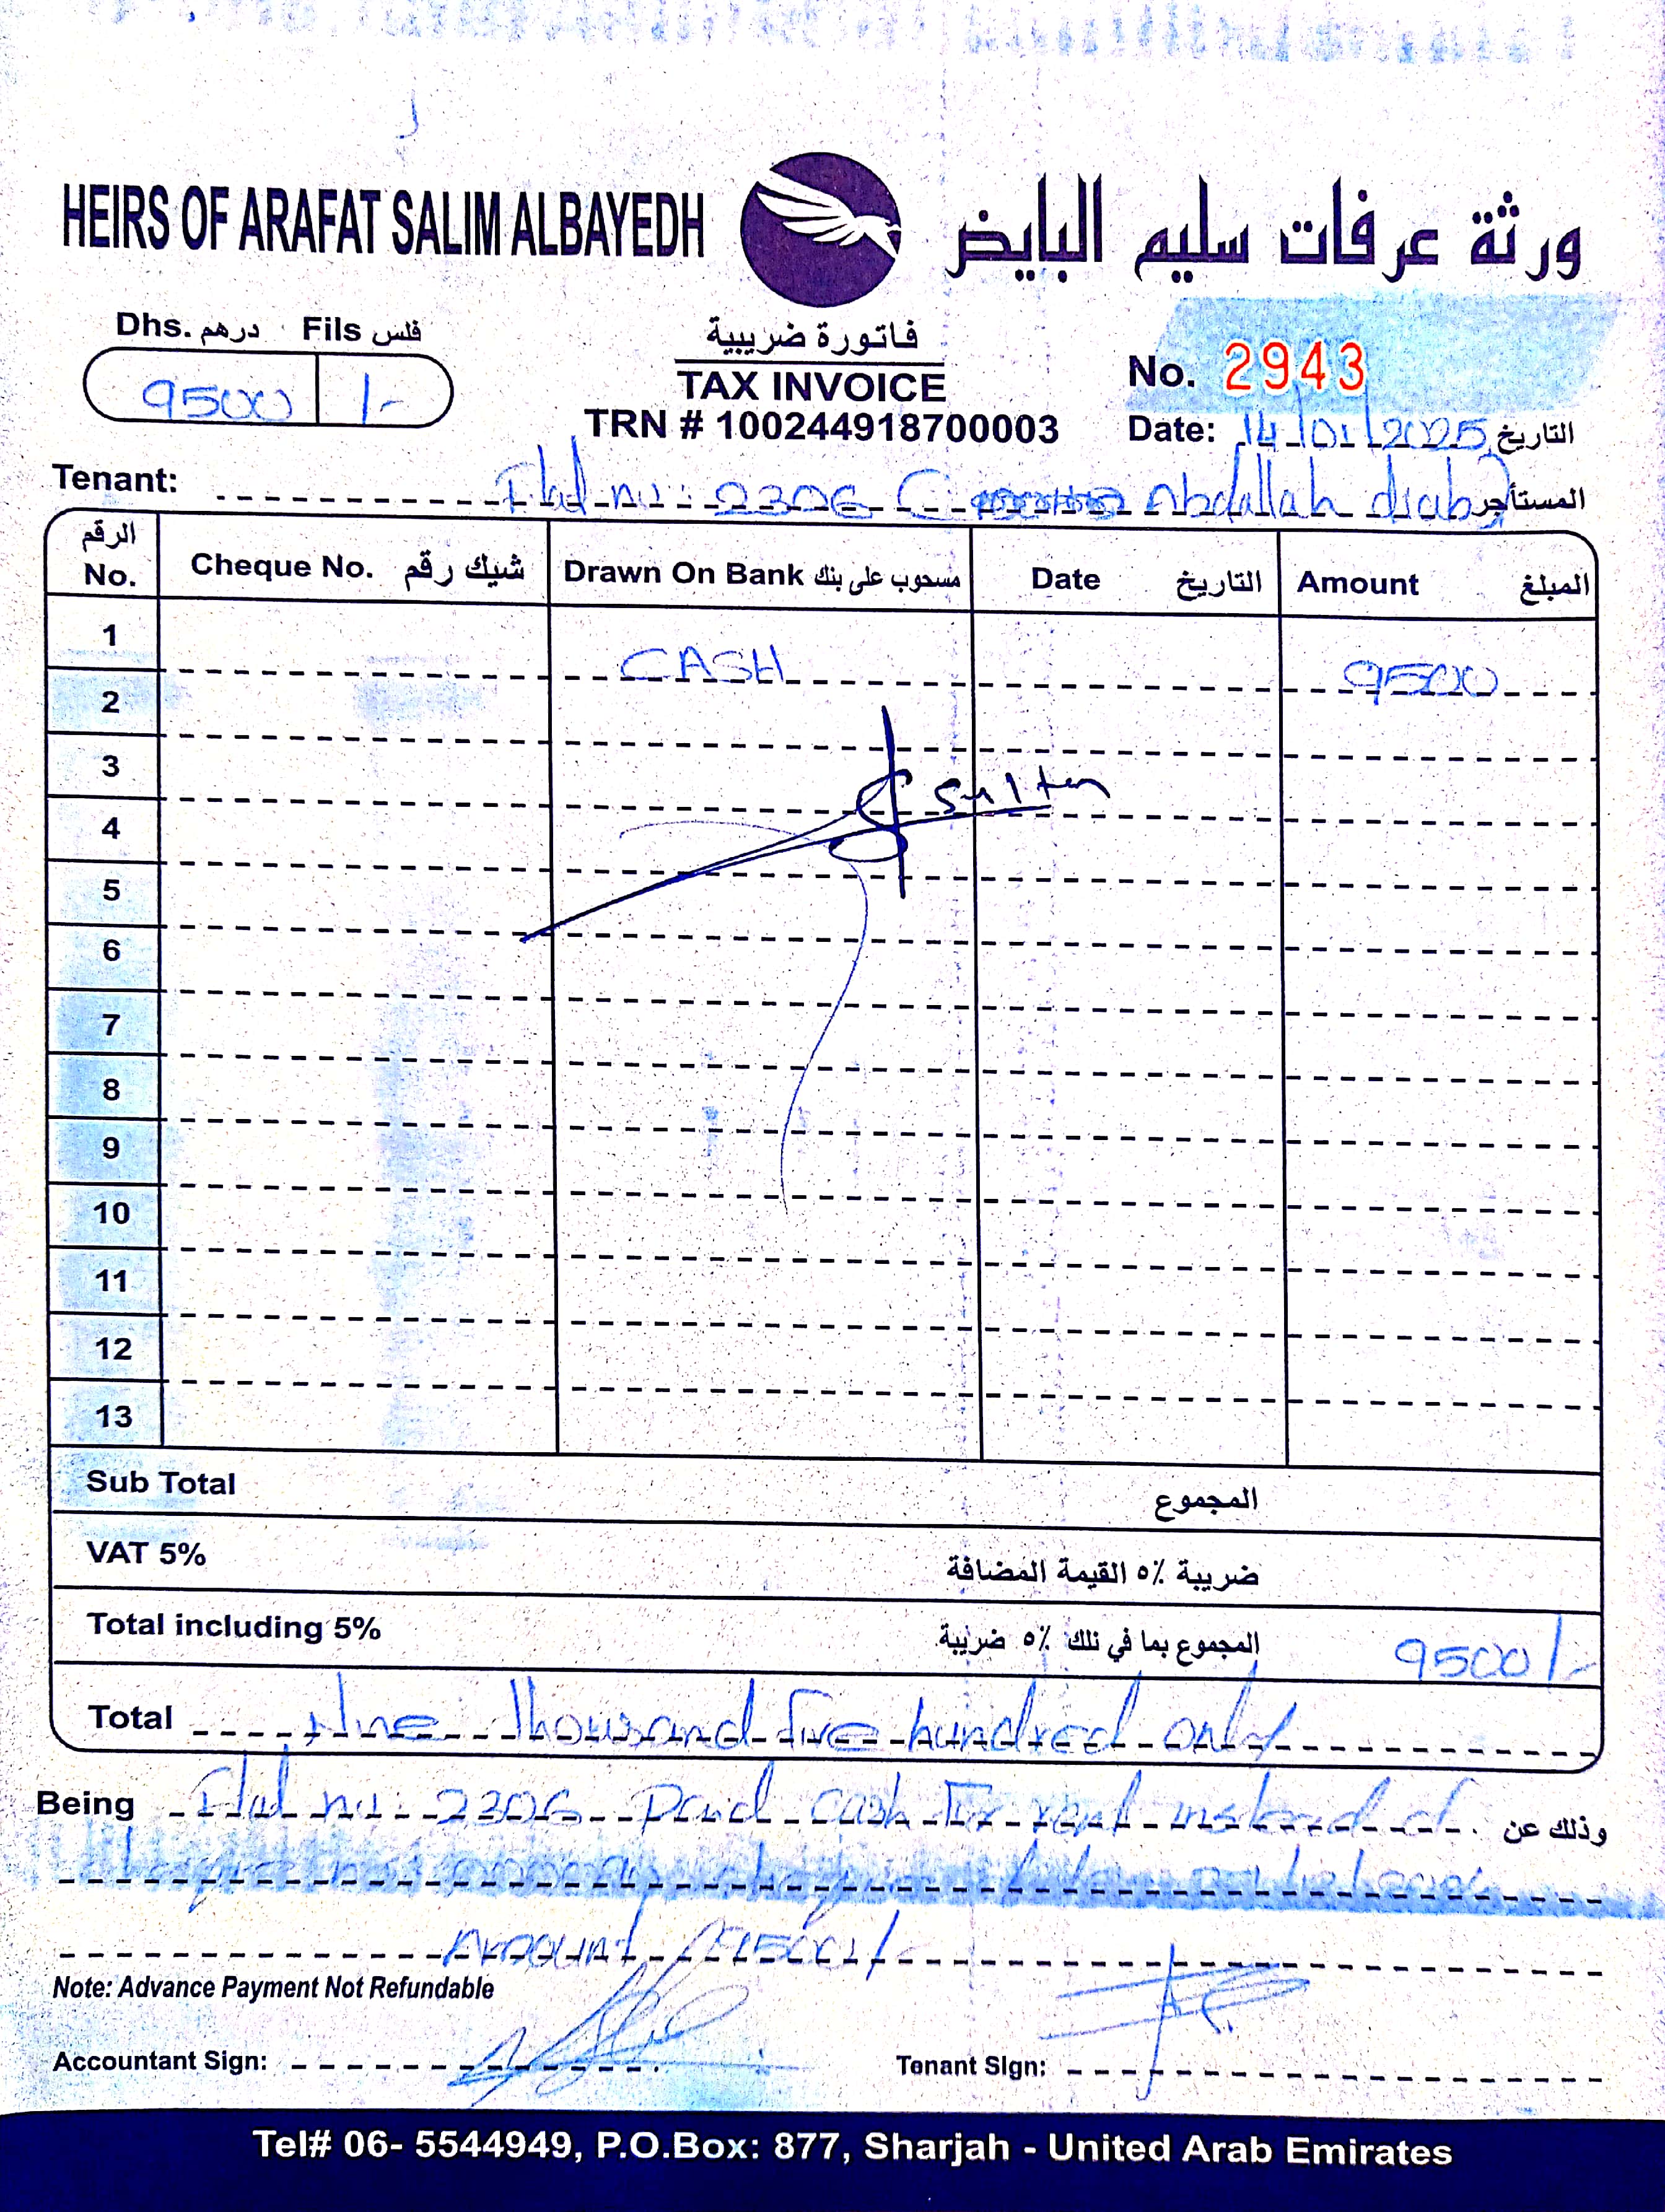 HEIRS OF ARAFAT SALIM ALBAYEDH ورثة عرفات سليم البايض
Dhs. درهم Fils فلس
9500 /-
فاتورة ضريبية
TAX INVOICE
TRN # 100244918700003
No. 2943
Date: 14/01/2025 التاريخ
Tenant: Flat no: 2306 ( Abdallah diab) المستأجر
الرقم No. Cheque No. شيك رقم Drawn On Bank مسحوب على بنك Date التاريخ Amount المبلغ
1 CASH 9500
2
3 Sultan
4
5
6
7
8
9
10
11
12
13
Sub Total المجموع
VAT 5% ضريبة ٥٪ القيمة المضافة
Total including 5% المجموع بما في ذلك ٥٪ ضريبة 9500/-
Total Nine Thousand five hundred only
Being Flat no: 2306 Paid cash for rent instead of وذلك عن
Amount 9500/-
Note: Advance Payment Not Refundable
Accountant Sign: Tenant SIgn:
Tel# 06- 5544949, P.O.Box: 877, Sharjah - United Arab Emirates